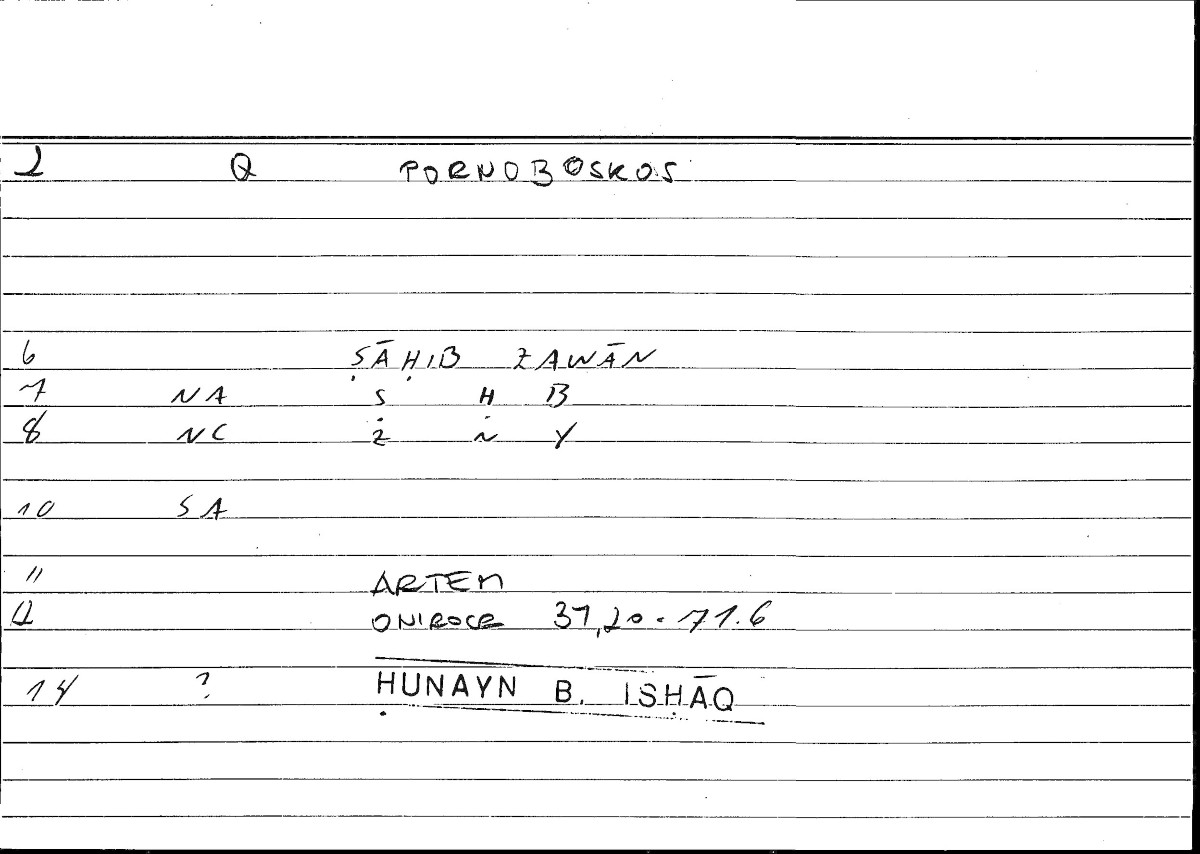 2 Q PORNOBOSKOS
6 ṢĀḤIB ZAWĀN
7 NA Ṣ Ḥ B
8 NC Z N Y
10 SA
11 ARTEM
12 ONIROCR 37,20 - 71.6
14 ? ḤUNAYN B. ISḤĀQ